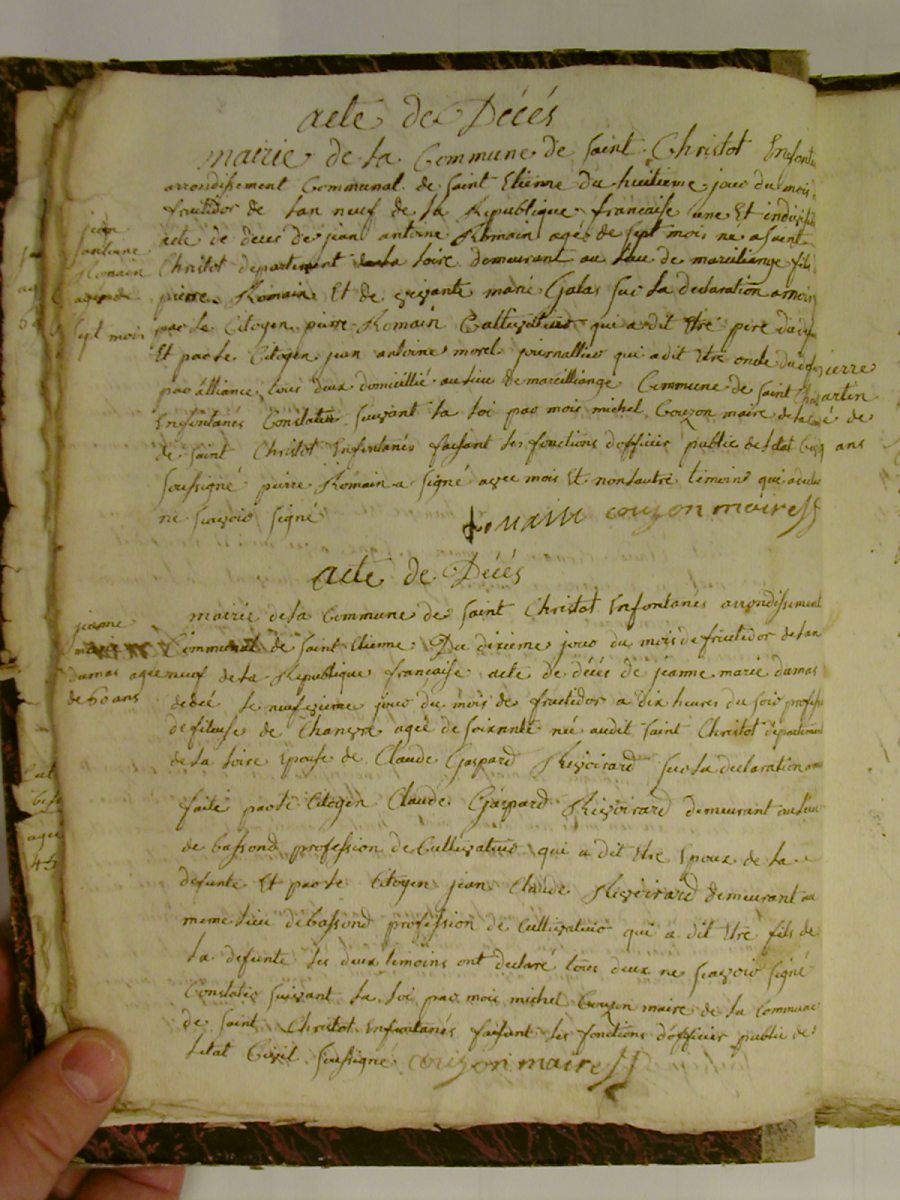 acte de Décés
mairie de la Commune de Saint Christot Enfont
arrondissement Communal de Saint Etienne du huitieme jour du mois
fructidor de lan neuf de la République francaise une Et indivisi
acte de déces de jean antoine Romain agé de sept mois né a Saint
Christot département de la Loire demeurant au lieu de mareiliange fils
pierre Romain Et de vivante marie Galas Sur la declaration a moi
par le Citoyen pierre Romain Cultivateur qui a dit Etre pere du
Et par le Citoyen jean antoine morel journallier qui a dit Etre oncle du
par alliance, tous deux domicillié au lieu de mareilliange Commune de Saint Chr
Enfontanés Constatée Suivant la loi par mois michel Couzon maire de la
de Saint Christot Enfontanés faisant les fonctions dofficier public de letat Civil
Soussigné pierre Romain a Signé avec mois Et non lautre témoin qui a declaré
ne Scavoir Signé
Romain couzon maire
jean
antoine
Romain
agé de
sept mois
pierre
artin
é de
ans
acte de Décés
mairie de la Commune de Saint Christot Enfontanés arrondissement
Communal de Saint Etienne Du dixieme jour du mois de fructidor de lan
neuf de la République francaise acte de décés de jeanne marie dumas
dedcé le neufvieme jour du mois de fructidor a dix heures du soir profess
de fileuse de Chanvre agée de Soixante née audit Saint Christot département
de la Loire Epouse de Claude Gaspard Rivoirard Sur la declaration
faite par le Citoyen Claude Gaspard Rivoirard demeurant au lieu
de bassond profession de Cultivateur qui a dit Etre Epoux de la
defunte Et par le Citoyen jean Claude Rivoirard demeurant au
meme lieu de bassond profession de Cultivateur qui a dit Etre fils de
la defunte les deux temoins ont declaré tous deux ne Scavoir Signé
Constatée Suivant la loi par mois michel Couzon maire de la Commune
de Saint Christot Enfontanés faisant les fonctions dofficier public de
letat Civil Soussigné couzon maire
jeanne
marie
dumas agée
de 60 ans
agée
45